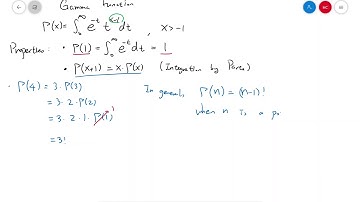 Gamma function
Γ(x) = ∫₀^∞ e^-t t^x-1 dt , x>-1
Properties: • Γ(1) = ∫₀^∞ e^-t dt = 1
• Γ(x+1) = x·Γ(x) (Integration by Parts)
• Γ(4) = 3·Γ(3)
= 3·2·Γ(2)
= 3·2·1·Γ(1) 1
= 3!
In general, Γ(n) = (n-1)!
when n is a po